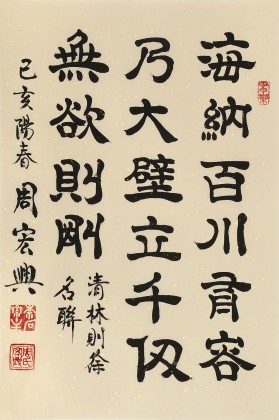 海納百川有容
乃大壁立千仞
無欲則剛
清林則徐
名聯
己亥陽春 周宏興